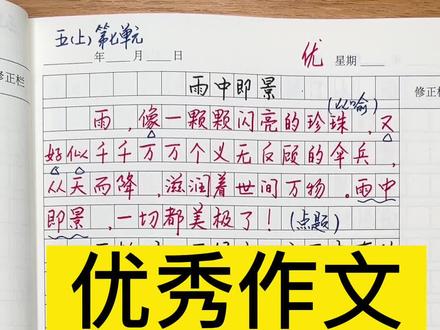 五(上)第七单元
年 月 日 优 星期
修正栏 雨中即景 修正栏
(比喻)
雨，像一颗颗闪亮的珍珠，又
好似千千万万个义无反顾的伞兵，
从天而降，滋润着世间万物。雨中
即景，一切都美极了！(点题)
优秀作文